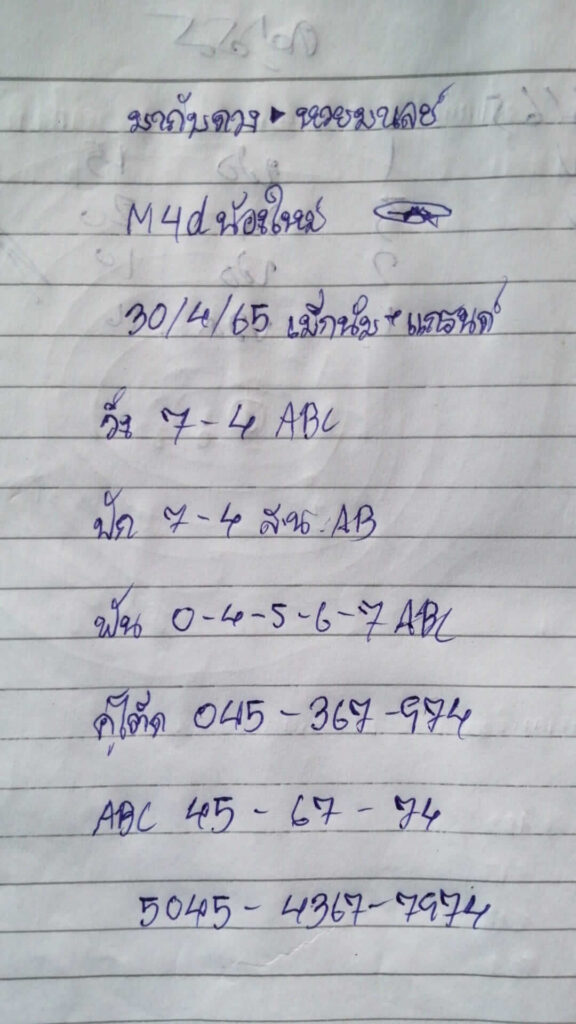 มากับดวง ▸ หวยมาเลย์
M4d น้องใหม่
30/4/65 เม็กนั่ม + แกรนด์
วิ่ง 7-4 ABC
ปัก 7-4 ส.น. AB
ฟัน 0-4-5-6-7 ABC
คู่โต๊ด 045 - 367 - 974
ABC 45 - 67 - 74
5045 - 4367 - 7974